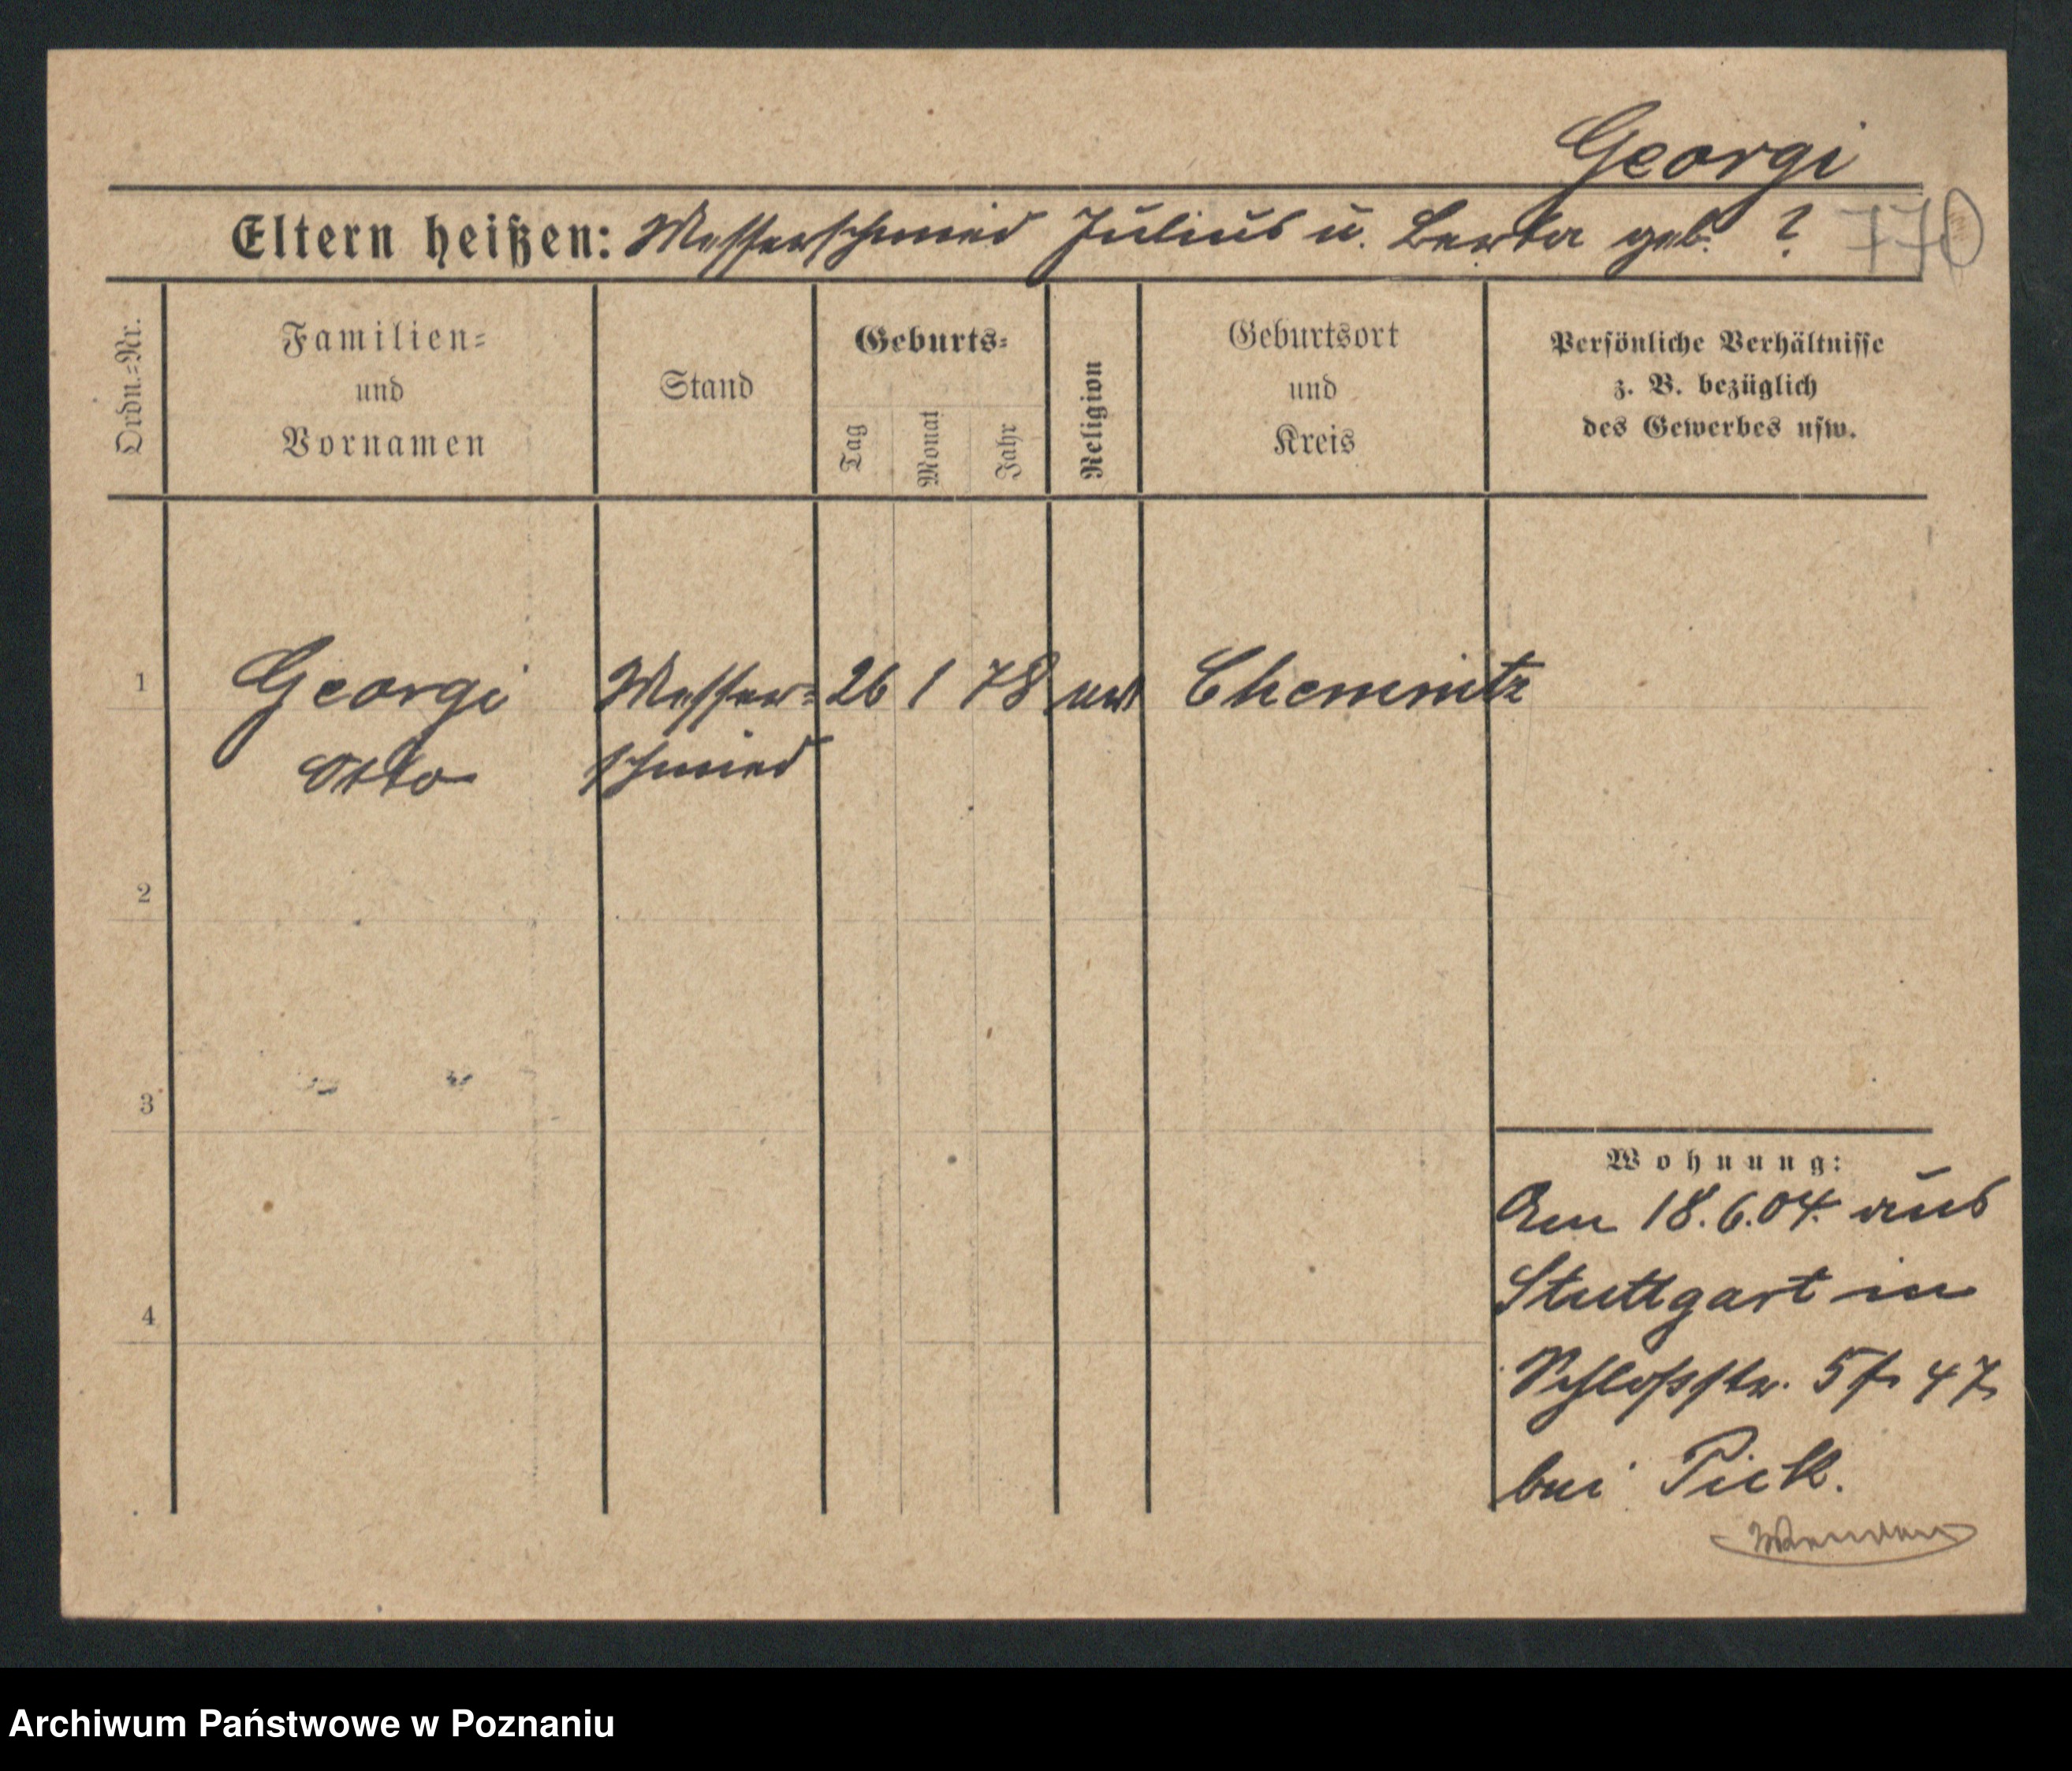 Georgi
Eltern heißen: Messerschmied Julius u. Berta geb. ? 770
Ordn.=Nr.
Familien=
und
Vornamen
Stand
Geburts=
Tag
Monat
Jahr
Religion
Geburtsort
und
Kreis
Persönliche Verhältnisse
z. B. bezüglich
des Gewerbes usw.
1 Georgi Messer= 26 1 78 Chemnitz
Otto schmied
2
3
Wohnung:
Am 18.6.04. aus
4
Stuttgart in
Schloßstr. 5 47
bei Pick.
Archiwum Państwowe w Poznaniu